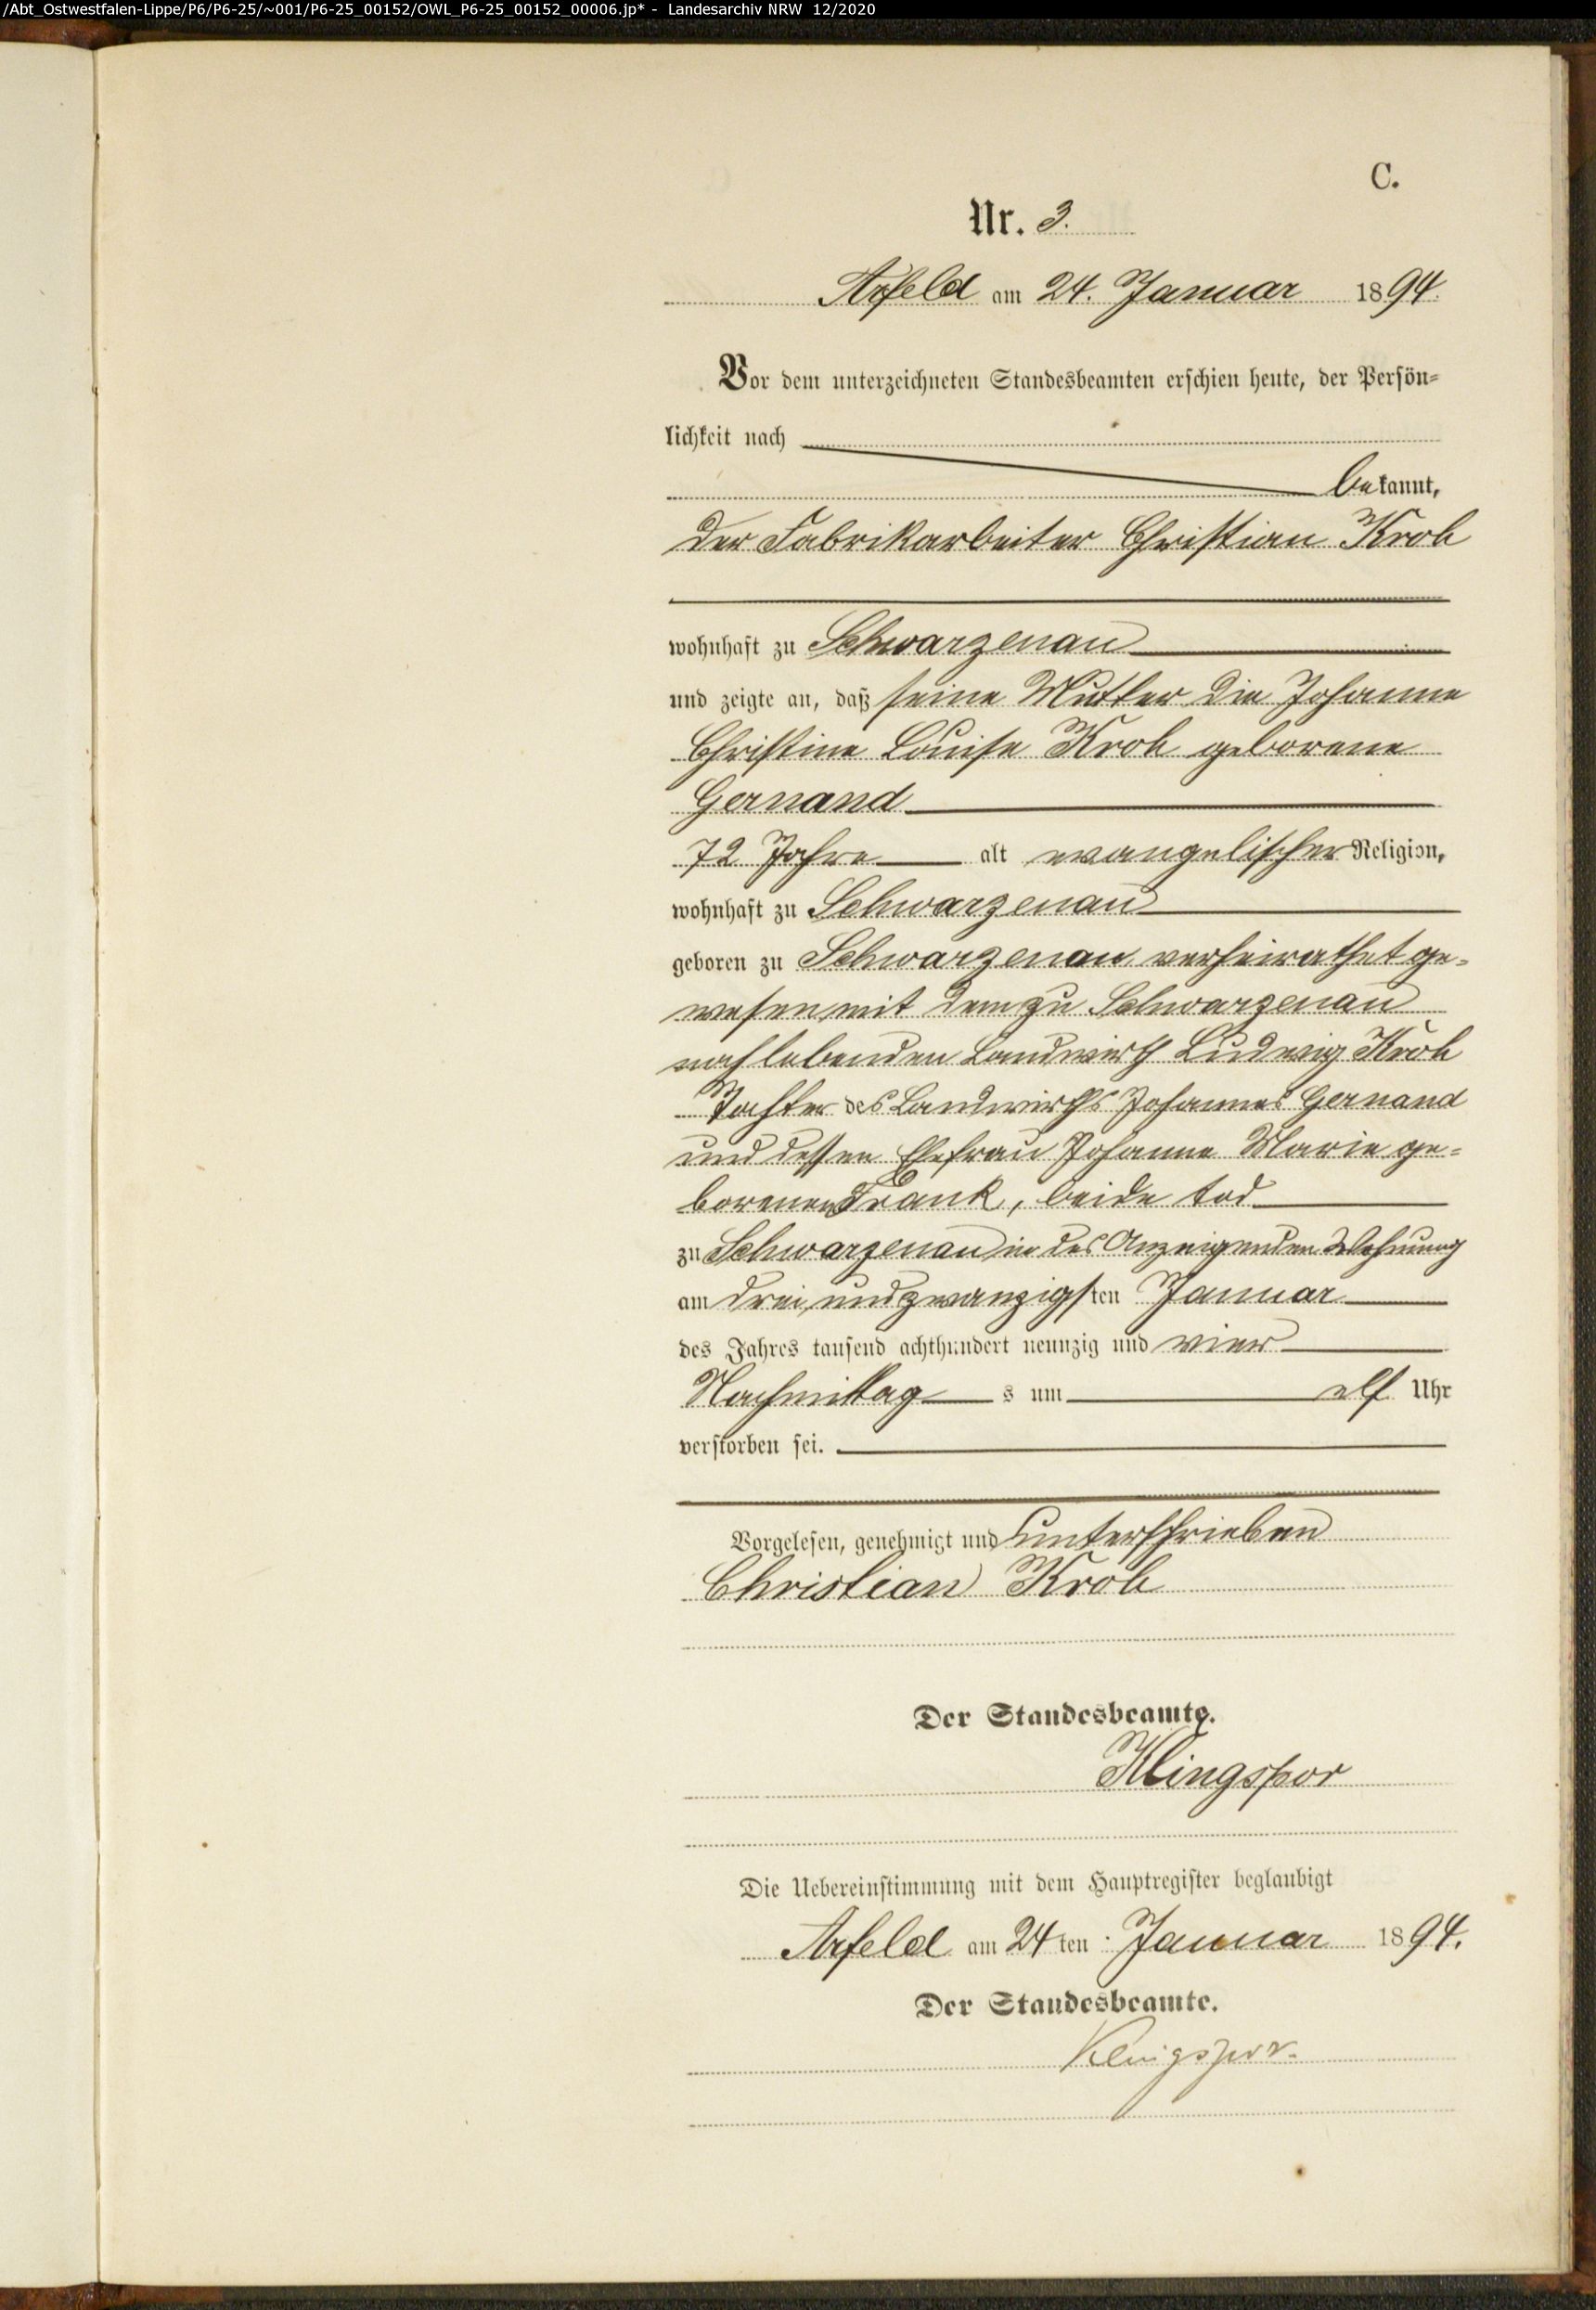 /Abt_Ostwestfalen-Lippe/P6/P6-25/~001/P6-25_00152/OWL_P6-25_00152_00006.jp* - Landesarchiv NRW 12/2020
C.
Nr. 3.
Arfeld am 24. Januar 1894.
Vor dem unterzeichneten Standesbeamten erschien heute, der Persön-
lichkeit nach
bekannt,
der Fabrikarbeiter Christian Kroh
wohnhaft zu Schwarzenau
und zeigte an, daß seine Mutter die Johanne
Christine Louise Kroh geborene
Gernand
72 Jahre alt evangelischer Religion,
wohnhaft zu Schwarzenau
geboren zu Schwarzenau verheirathet ge-
wesen mit dem zu Schwarzenau
noch lebenden Landwirth Ludwig Kroh
Tochter des Landwirths Johannes Gernand
und dessen Ehefrau Johanne Marie ge-
borenen Frank, beide tod
zu Schwarzenau in des Anzeigenden Wohnung
am drei und zwanzigsten Januar
des Jahres tausend achthundert neunzig und vier
Nachmittags um elf Uhr
verstorben sei.
Vorgelesen, genehmigt und unterschrieben
Christian Kroh
Der Standesbeamte.
Klingspor
Die Uebereinstimmung mit dem Hauptregister beglaubigt
Arfeld am 24ten Januar 1894.
Der Standesbeamte.
Klingspor.